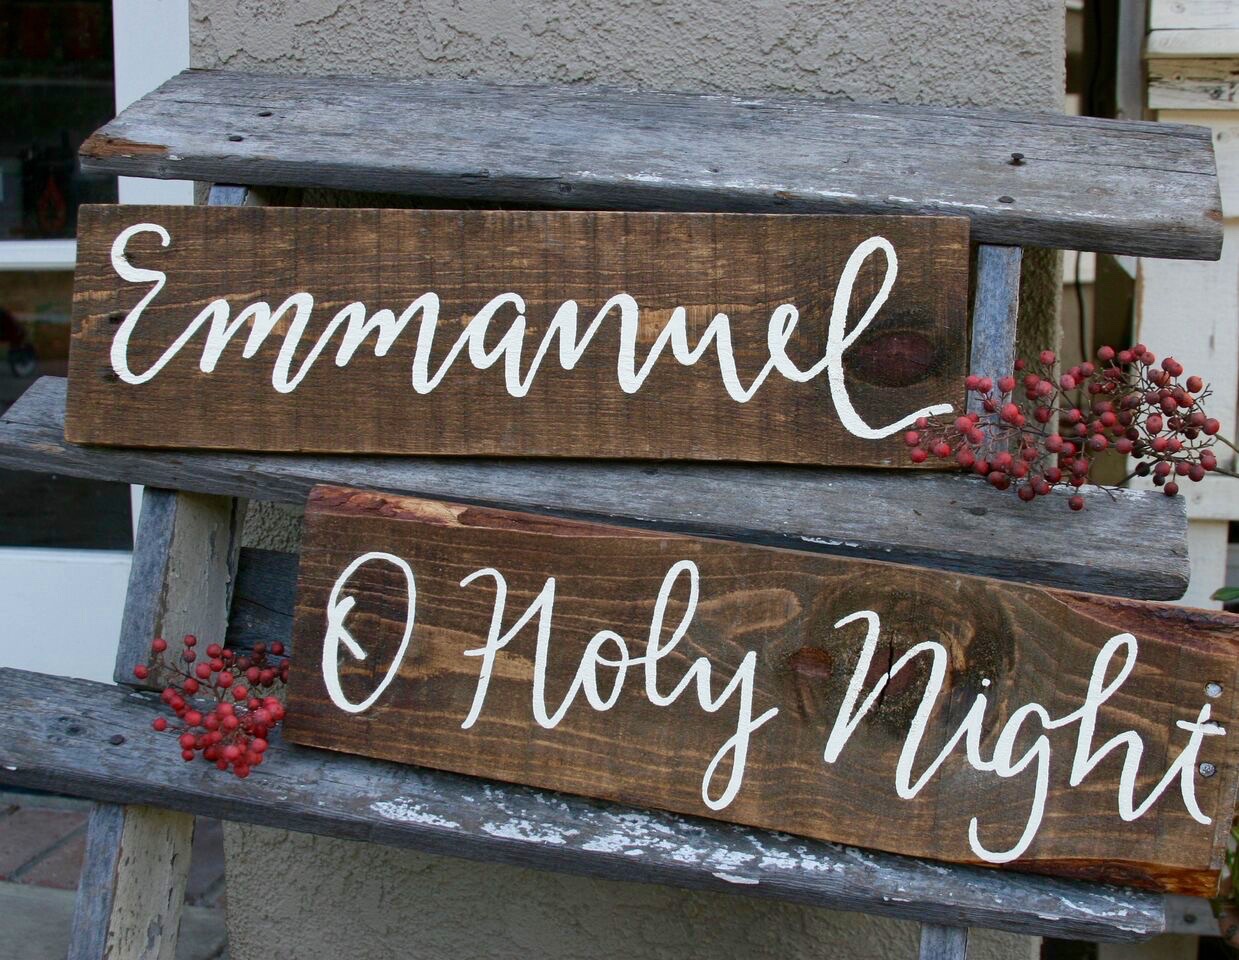 Emmanuel
O Holy Night